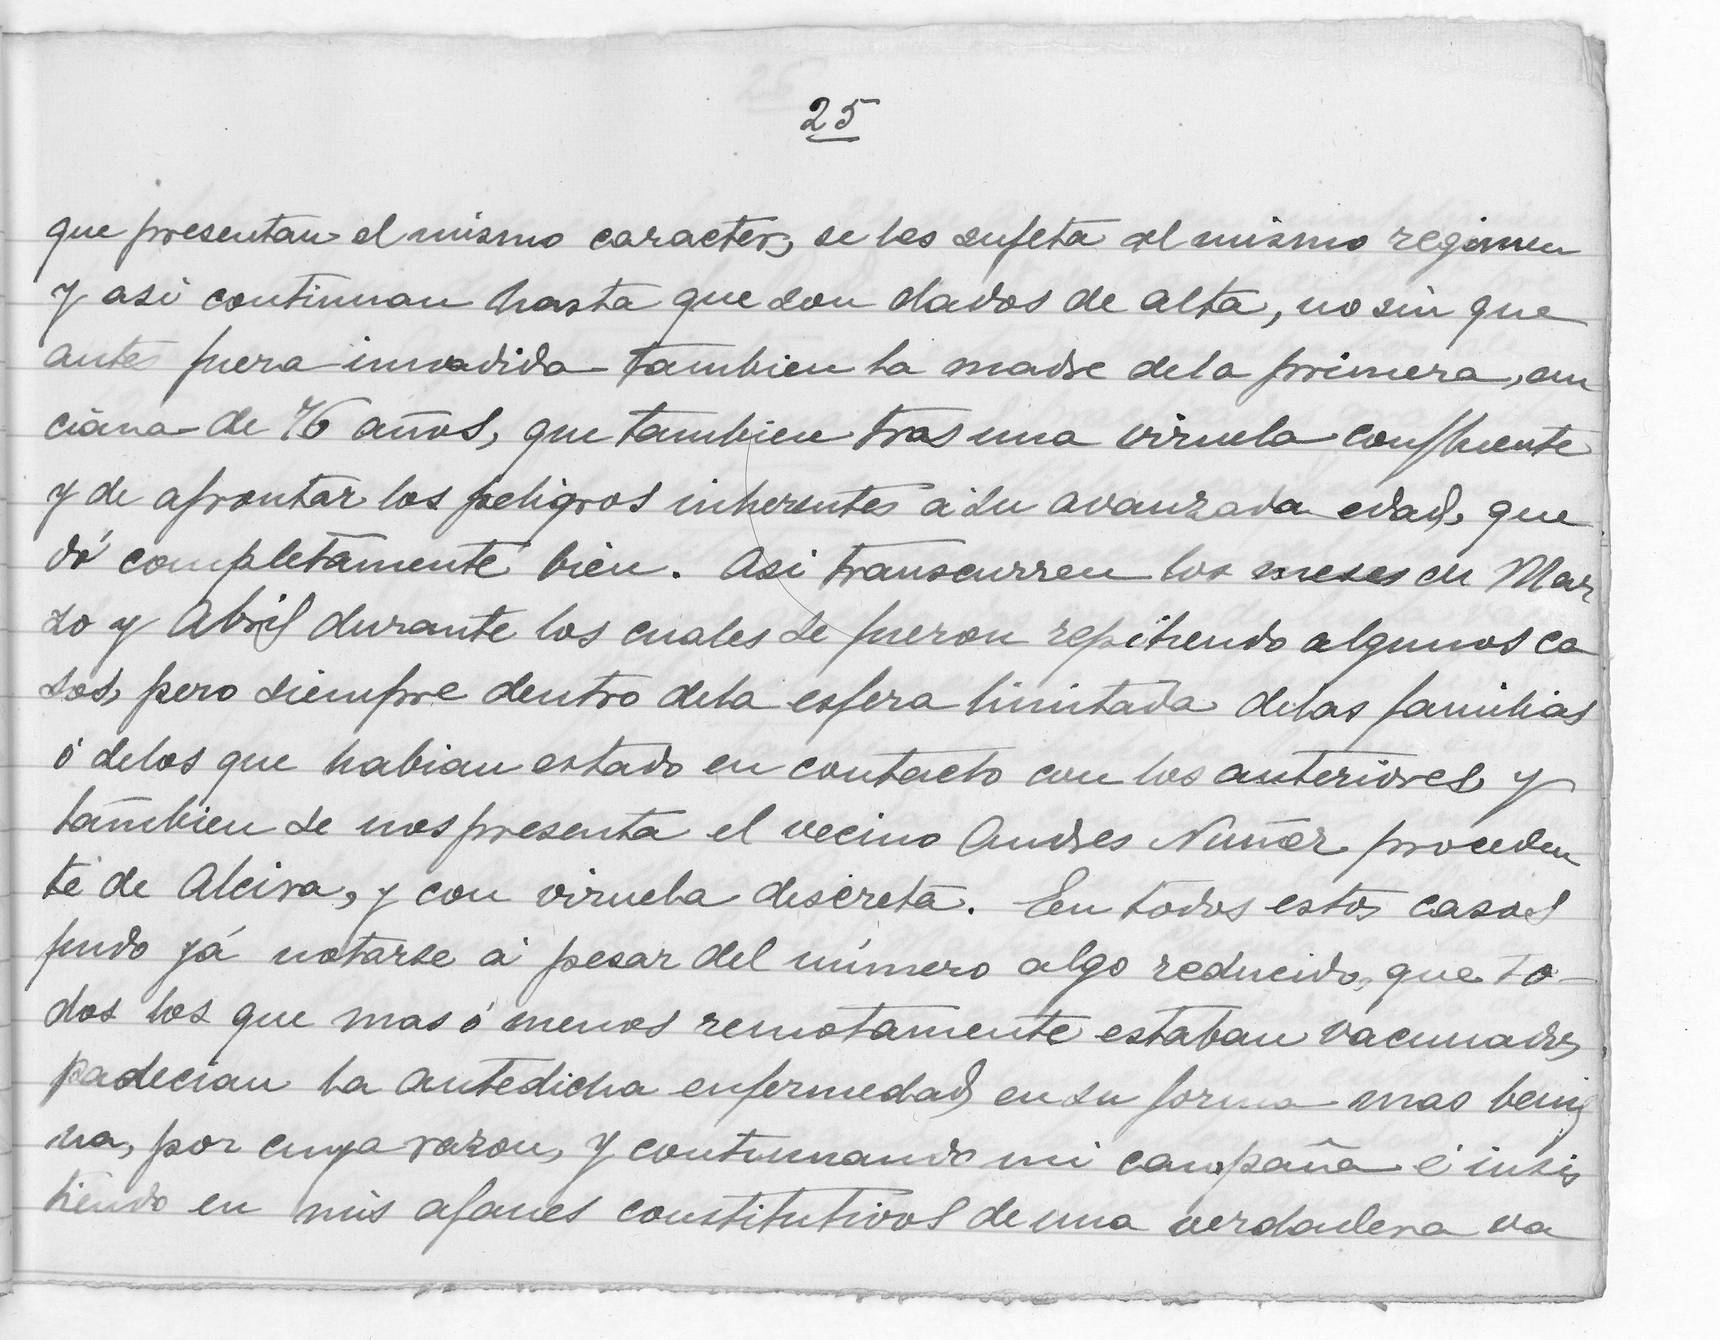 25
que presentan el mismo caracter, se les sujeta al mismo regimen
y asi continuan hasta que son dados de alta, no sin que
antes fuera invadida tambien la madre dela primera, an
ciana de 76 años, que tambien tras una viruela confluente
y de afrontar los peligros inherentes á su avanzada edad, que
dó completamente bien. Asi transcurren los meses de Mar
zo y Abril durante los cuales se fueron repitiendo algunos ca
sos, pero siempre dentro dela esfera limitada delas familias
ó delos que habian estado en contacto con los anteriores y
tambien se nos presenta el vecino Andres Nuñez proceden
te de Alcira, y con viruela discreta. En todos estos casos
pudo yá notarse á pesar del número algo reducido, que to-
dos los que mas ó menos remotamente estaban vacunados,
padecian la antedicha enfermedad en su forma mas benig
na, por cuya razon, y continuando mi campaña é insis
tiendo en mis afanes constitutivos de una verdadera va